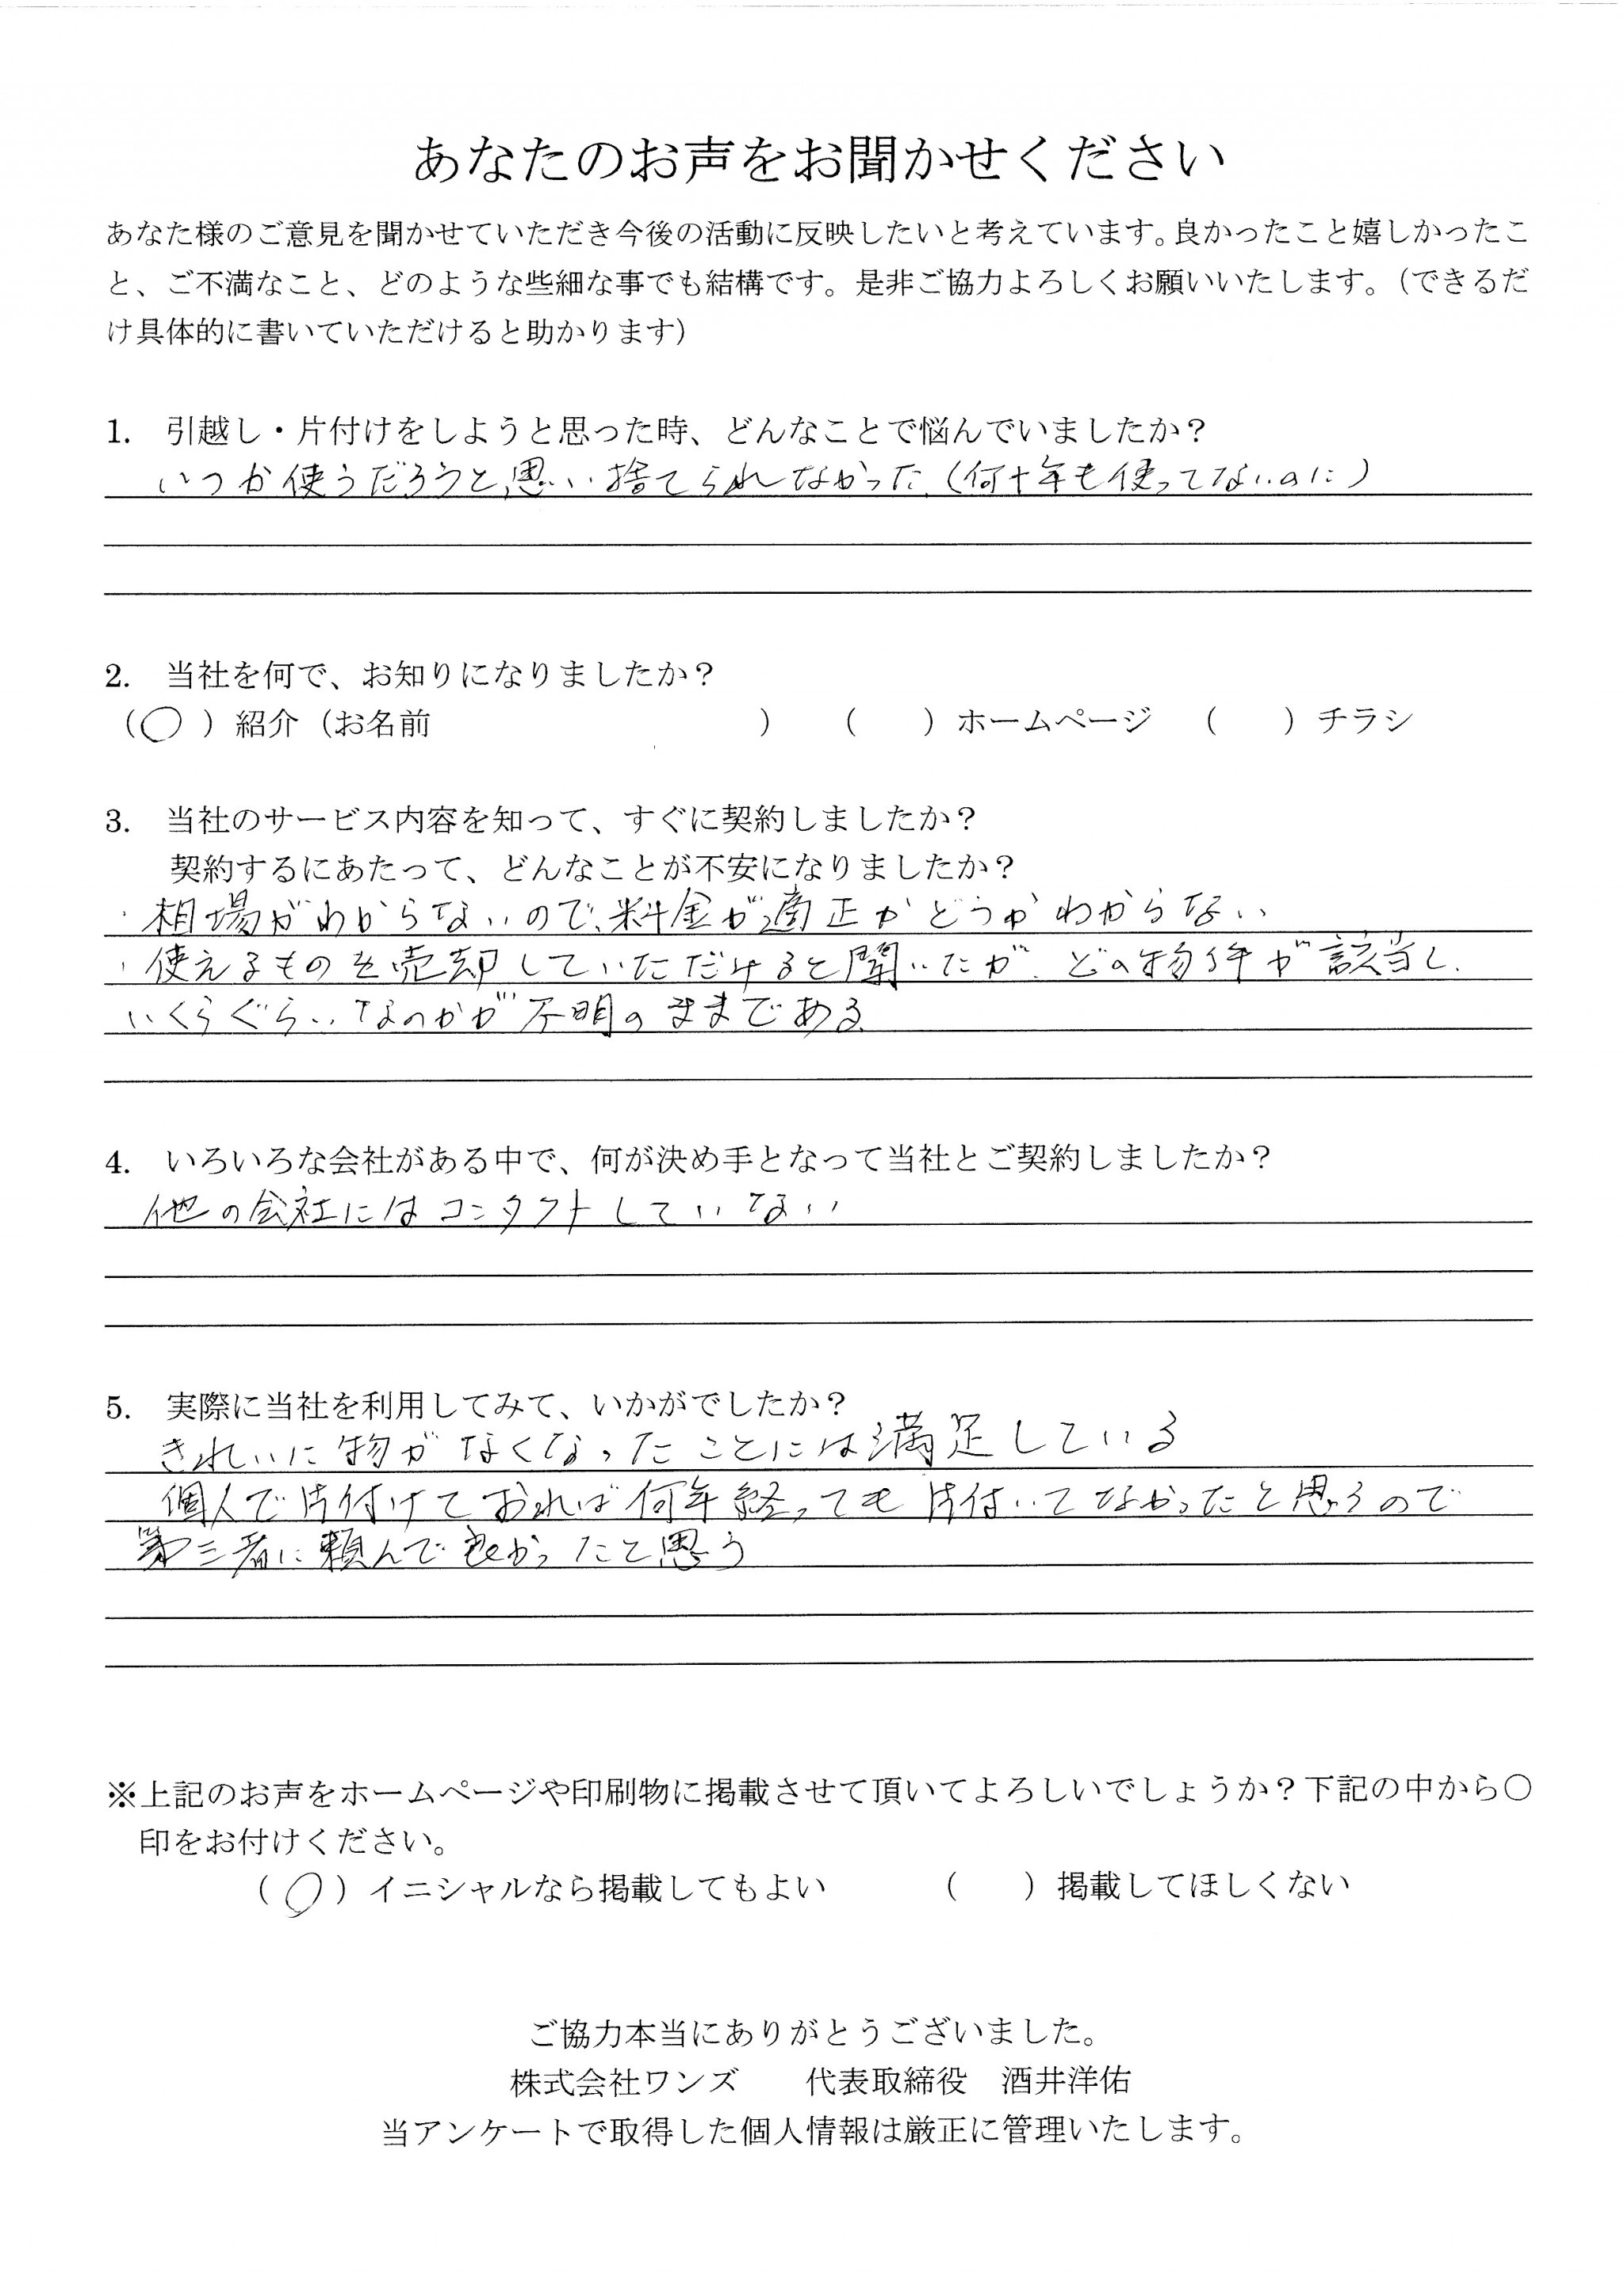 あなたのお声をお聞かせください
あなた様のご意見を聞かせていただき今後の活動に反映したいと考えています。良かったこと嬉しかったこ
と、ご不満なこと、どのような些細な事でも結構です。是非ご協力よろしくお願いいたします。（できるだ
け具体的に書いていただけると助かります）
1. 引越し・片付けをしようと思った時、どんなことで悩んでいましたか？
いつか使うだろうと思い捨てられなかった（何十年も使ってないのに）
2. 当社を何で、お知りになりましたか？
（○）紹介（お名前　　　　　　　　　　）　（　　）ホームページ　（　　）チラシ
3. 当社のサービス内容を知って、すぐに契約しましたか？
契約するにあたって、どんなことが不安になりましたか？
・相場がわからないので、料金が適正かどうかわからない
・使えるものを売却していただけると聞いたが、どの物件が該当し、
いくらぐらいなのかが不明のままである
4. いろいろな会社がある中で、何が決め手となって当社とご契約しましたか？
他の会社にはコンタクトしていない
5. 実際に当社を利用してみて、いかがでしたか？
きれいに物がなくなったことには満足している
個人で片付けておれば何年経っても片付いてなかったと思うので
第三者に頼んで良かったと思う
※上記のお声をホームページや印刷物に掲載させて頂いてよろしいでしょうか？下記の中から○
印をお付けください。
（○）イニシャルなら掲載してもよい　　　（　　）掲載してほしくない
ご協力本当にありがとうございました。
株式会社ワンズ　　代表取締役　酒井洋佑
当アンケートで取得した個人情報は厳正に管理いたします。